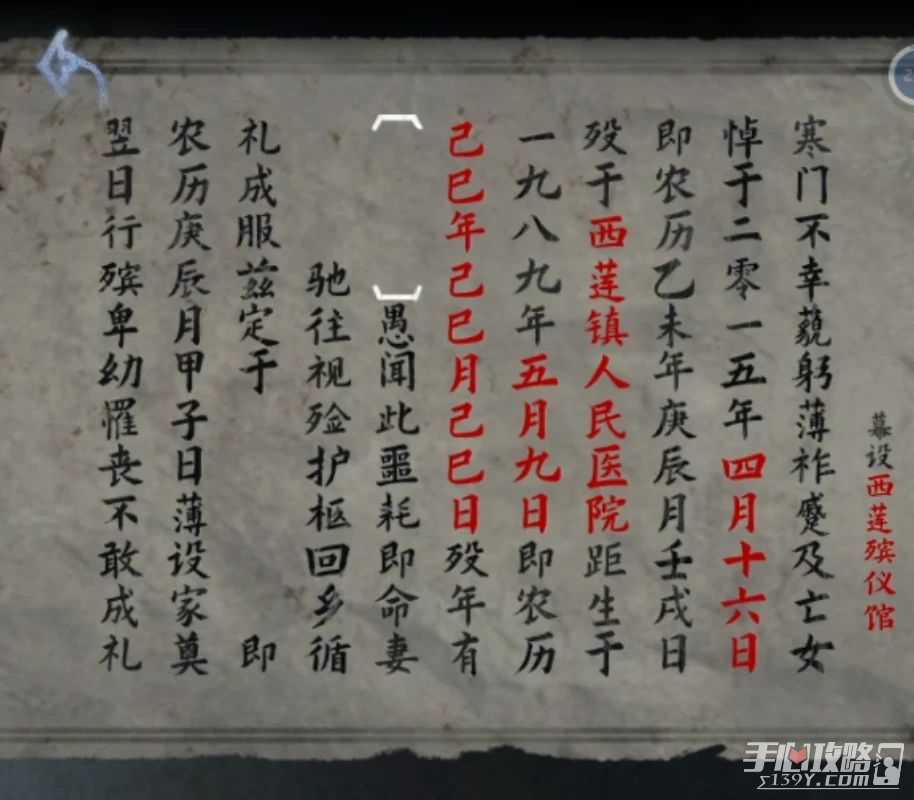 幕设西莲殡仪馆
寒门不幸藐躬薄祚蹙及亡女
悼于二零一五年四月十六日
即农历乙未年庚辰月壬戌日
殁于西莲镇人民医院距生于
一九八九年五月九日即农历
己巳年己巳月己巳日殁年有
愚闻此噩耗即命妻
驰往视殓护柩回乡循
礼成服兹定于 即
农历庚辰月甲子日薄设家奠
翌日行殡卑幼罹丧不敢成礼
手心攻略